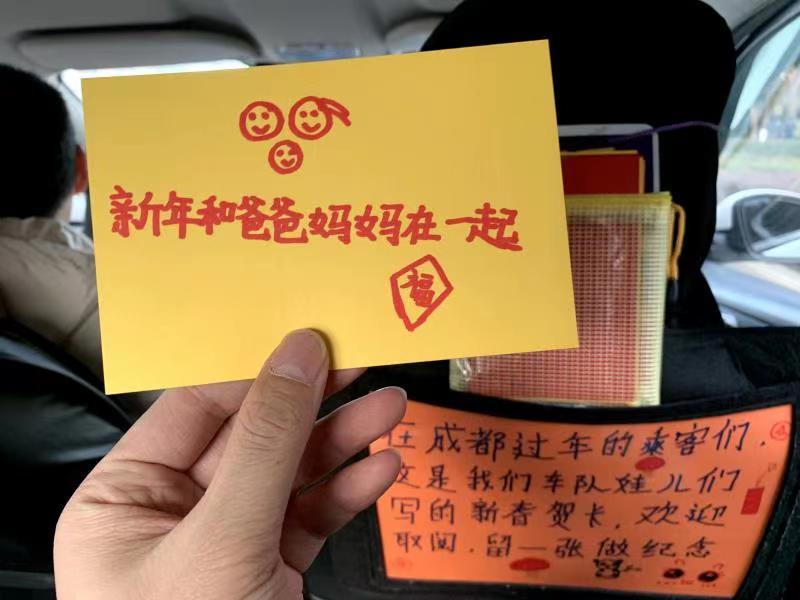 新年和爸爸妈妈在一起
福
在成都过年的乘客们，
这是我们车队娃儿们
写的新春贺卡，欢迎
取阅．留一张做纪念